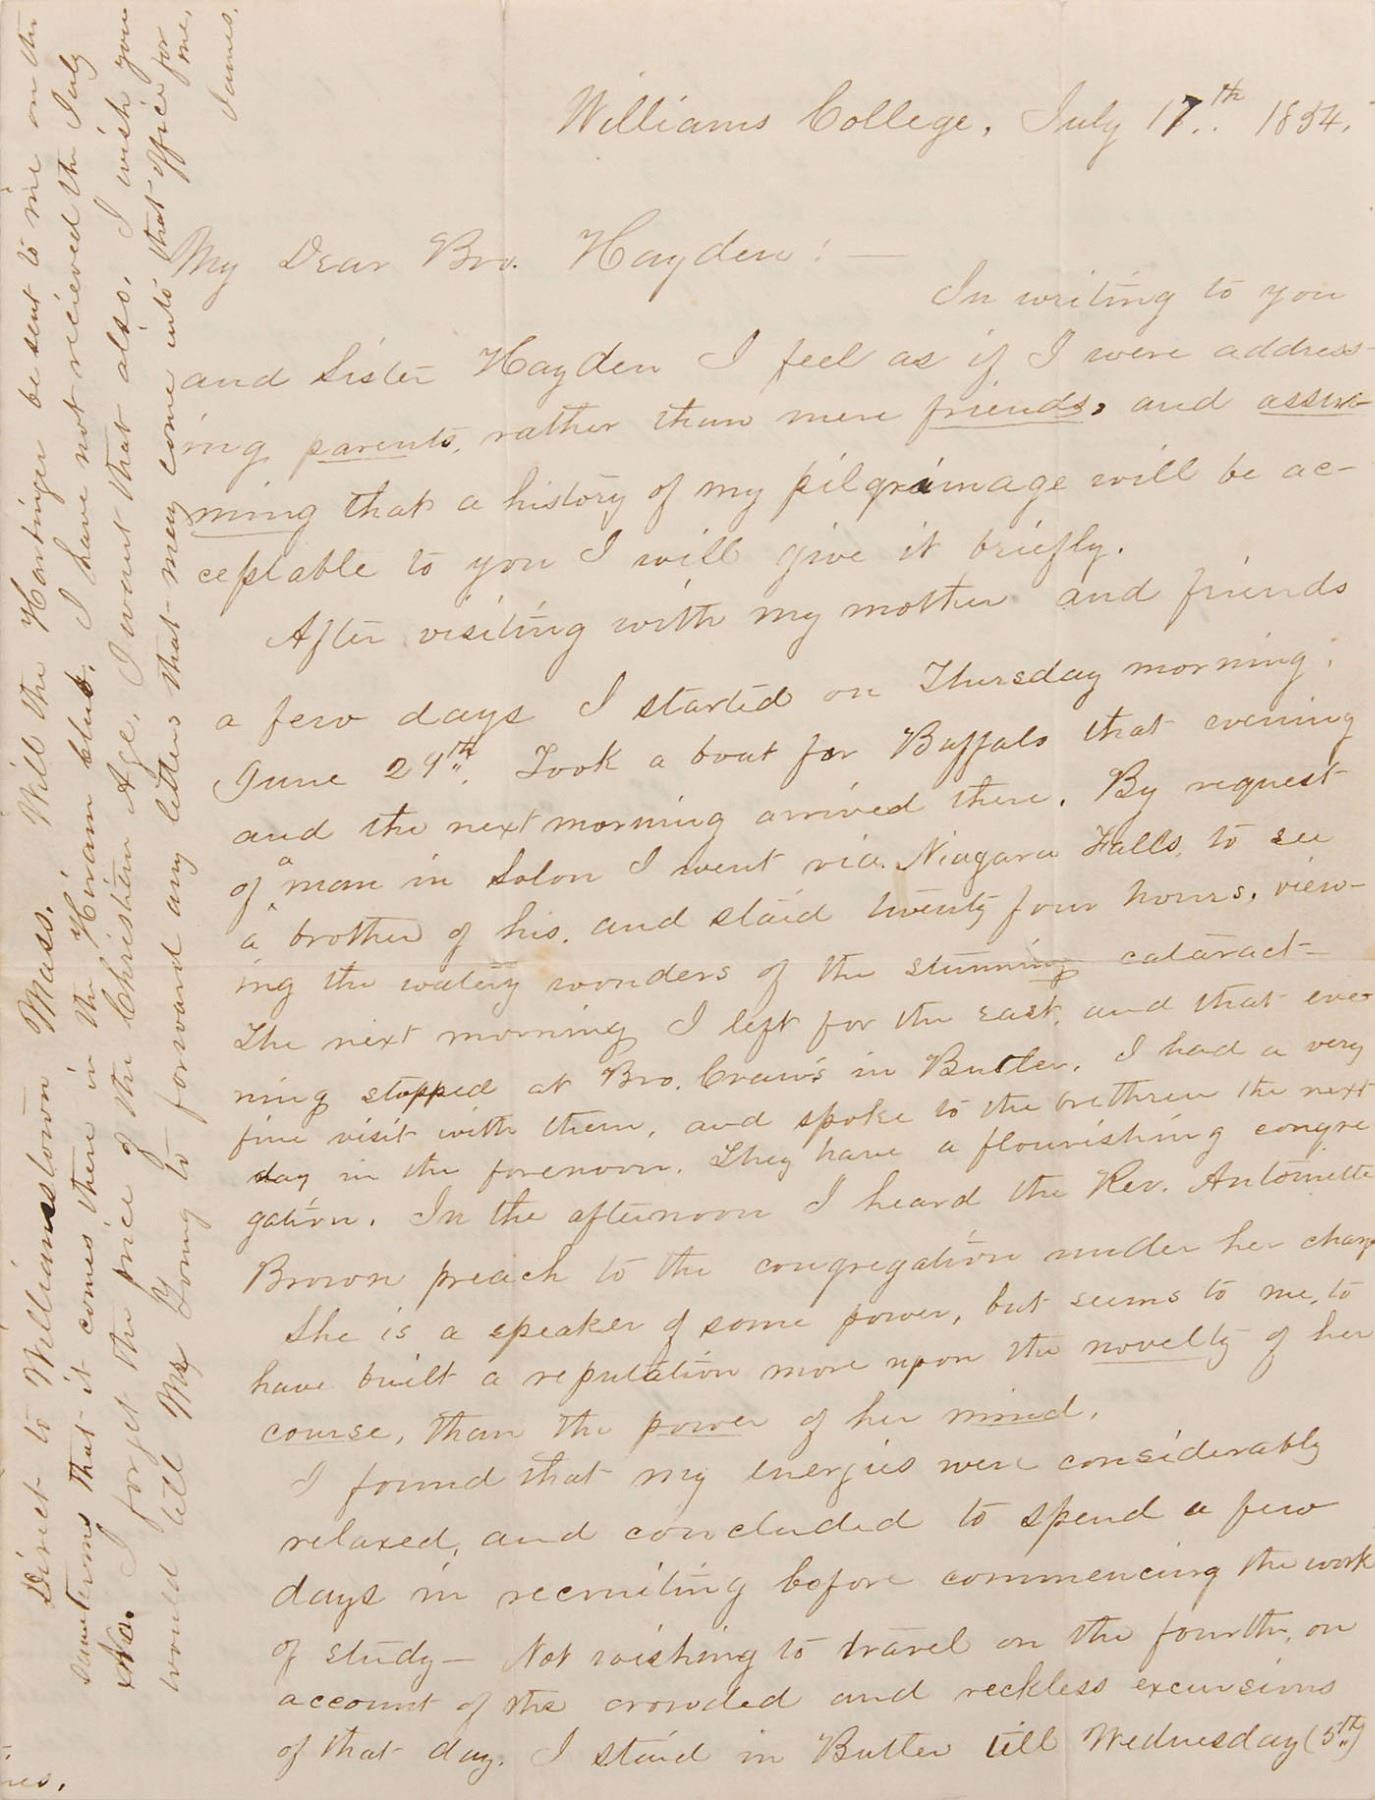 Williams College, July 17th 1854.
My Dear Bro. Hayden: —
In writing to you
and Sister Hayden I feel as if I were address-
ing parents, rather than mere friends, and assu-
ming that a history of my pilgrimage will be ac-
ceptable to you I will give it briefly.
After visiting with my mother and friends
a few days I started on Thursday morning,
June 29th. Took a boat for Buffalo that evening
and the next morning arrived there. By request
of a man in Solon I went via. Niagara Falls, to see
a brother of his, and staid twenty four hours, view-
ing the watery wonders of the stunning cataract—
The next morning I left for the east, and that eve-
ning stopped at Bro. Craw's in Butler. I had a very
fine visit with them, and spoke to the brethren the next
day in the forenoon. They have a flourishing congre
gation. In the afternoon I heard the Rev. Antoinette
Brown preach to the congregation under her charge
She is a speaker of some power, but seems to me, to
have built a reputation more upon the novelty of her
course, than the power of her mind.
I found that my energies were considerably
relaxed, and concluded to spend a few
days in recruiting before commencing the work
of study— Not wishing to travel on the fourth, on
account of the crowded and reckless excursions
of that day, I staid in Butler till Wednesday (5th)
Direct to Williamstown Mass. Will the Harbinger be sent to me on the
same terms that it comes there in the Hiram club. I have not recieved the July
No. I forget the price of the Christian Age, I want that also. I wish you
would tell Mr Young to forward any letters that may come into that office for
me,
James.